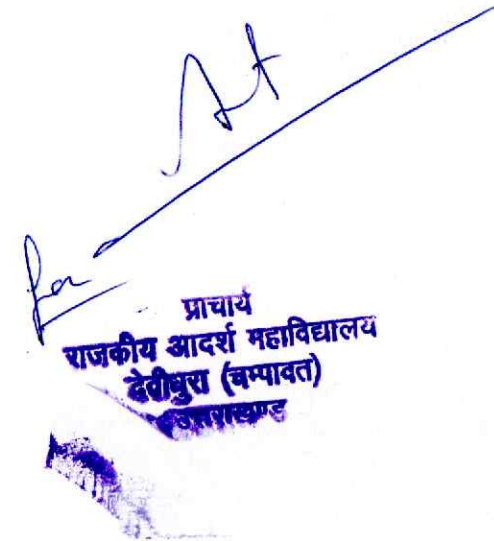 For
प्राचार्य
राजकीय आदर्श महाविद्यालय
देवीधुरा (चम्पावत)
उत्तराखण्ड